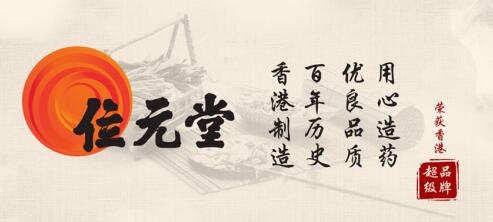 位元堂
用心造药
优良品质
百年历史
香港制造
荣获香港
超级品牌